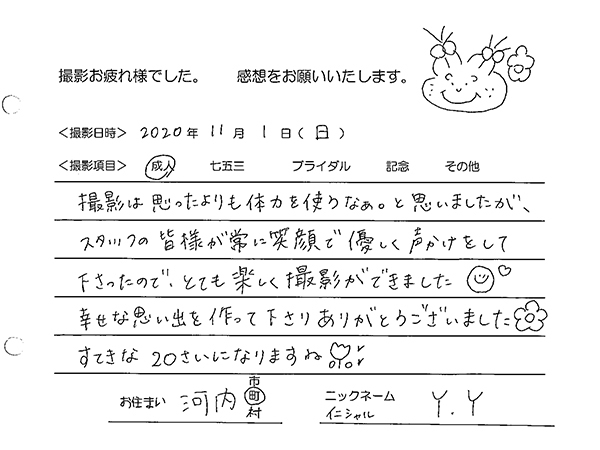 撮影お疲れ様でした。 感想をお願いいたします。
<撮影日時> 2020年 11月 1日(日)
<撮影項目> 成人 七五三 ブライダル 記念 その他
撮影は思ったよりも体力を使うなぁ。と思いましたが、
スタッフの皆様が常に笑顔で優しく声かけをして
下さったので、とても楽しく撮影ができました
幸せな思い出を作って下さりありがとうございました
すてきな20さいになりますね
お住まい 河内 市 町 村 ニックネーム イニシャル Y.Y